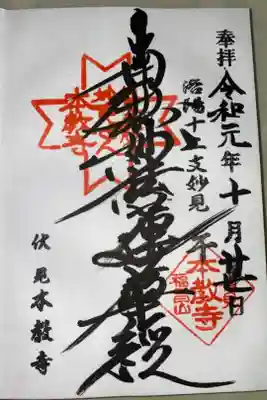 奉拝
令和元年十月廿一日
洛陽十二支妙見
午
南無妙法蓮華経
伏見本教寺
本教寺